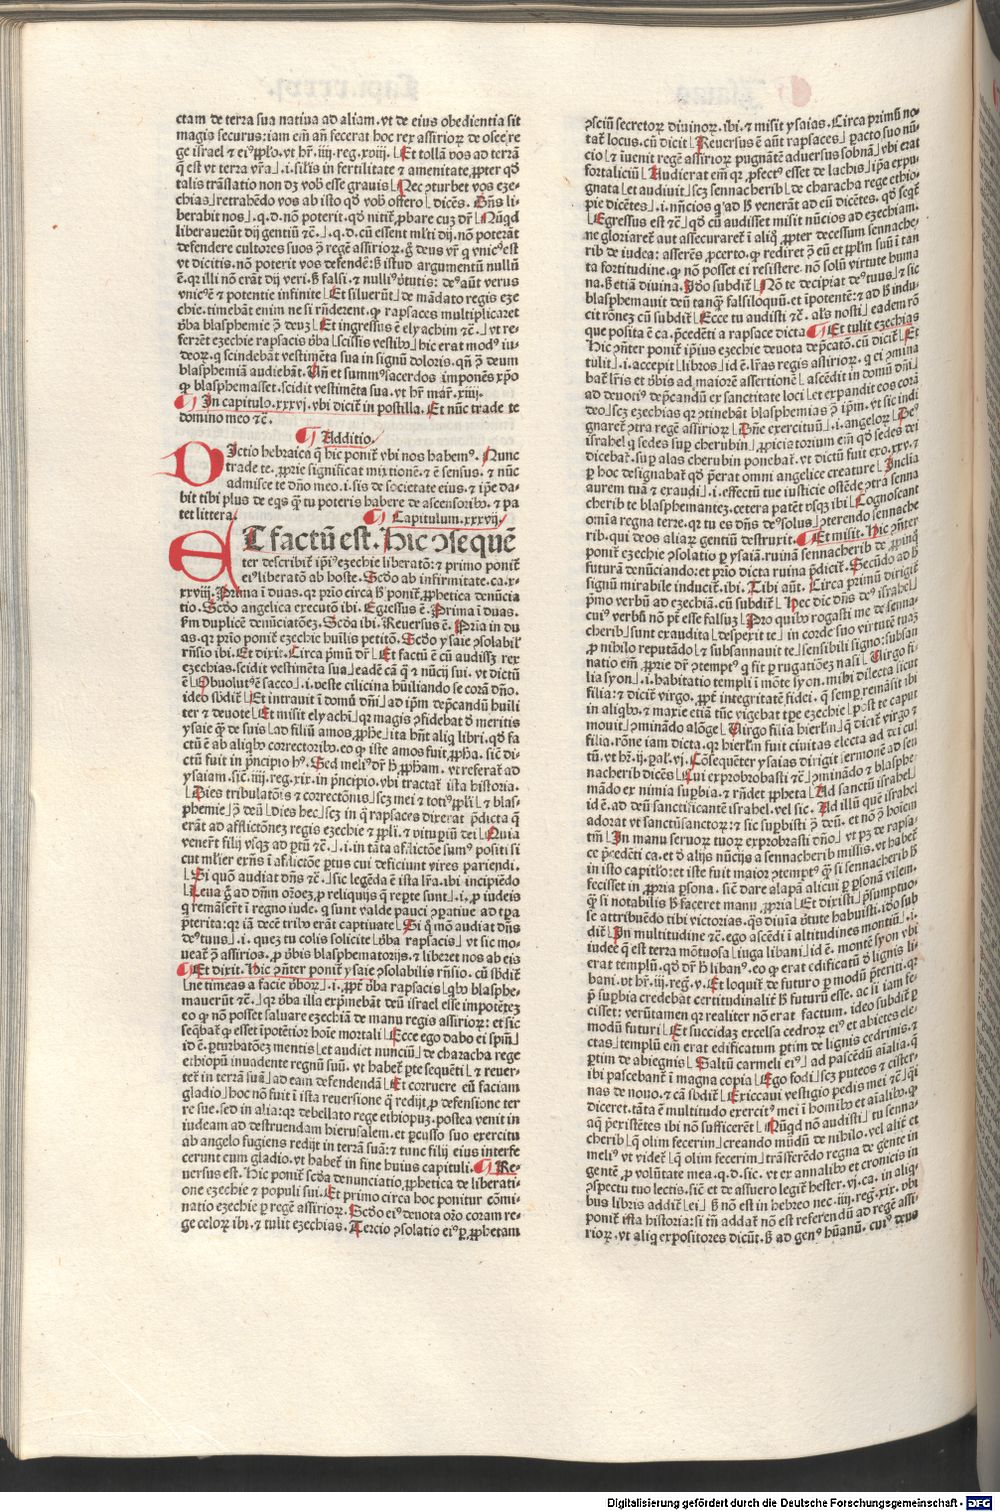 ctam de terra sua natiua ad aliam. vt de eius obedientia sit
magis securus: iam em̄ an̄ fecerat hoc rex assirioꝝ de osee re
ge israel ⁊ eiꝰ ꝓp̄lo. vt hr̄. iiij. reg. xviij. Et tollā vos ad terrā
q̄ est vt terra vr̄a. i. sil̓is in fertilitate ⁊ amenitate, ꝓpter qd̄
talis trāslatio non dꝫ vob̓ esse grauis Nec ꝓturbet vos eze-
chias retrahēdo vos ab isto qd̄ vob̓ offero dicēs. Dn̄s li-
berabit nos. q. d. nō poterit. qd̄ nitit̄, ꝓbare cuꝫ dr̄ Nūqd
liberauerūt dij gentiū ⁊c̄. q. d. cū essent ml̓ti dij. nō poterāt
defendere cultores suos ꝯ̄ regē assirioꝝ. g̊ deus vr̄ q vnicꝰ est
vt dicitis. nō poterit vos defende̓: sꝫ istud argumentū nullū
ē. qꝛ illi nō erāt dij veri. sꝫ falsi. ⁊ nulliꝰ v̓tutis: deꝰ aūt verus
vnicꝰ ē ⁊ potentie infinite Et siluerūt de mādato regis eze
chie. timebāt enim ne si rn̄derent. ꝙ rapsaces multiplicaret
v̓ba blasphemie ꝯ̄ deuꝫ Et ingressus ē elyachim ⁊c̄. vt re-
ferrēt ezechie rapsacis v̓ba scissis vestibꝰ hic erat modꝰ iu-
deoꝝ. q scindebāt vestimēta sua in signū doloris. qn̄ ꝯ̄ deum
blasphemiā audiebāt. Vn̄ et summꝰ sacerdos imponēs xp̄o
ꝙ blasphemasset. scidit vestimēta sua. vt hr̄ mar̓. xiiij.
¶ In capitulo. xxxvi. vbi dicit̄ in postilla. Et nūc trade te
domino meo ⁊c̄.
¶ Additio.
DIctio hebraica q̄ hic ponit̄ vbi nos habemꝰ. Nunc
trade te. ꝓprie significat mixtionē. ⁊ ē sensus. ⁊ nūc
admisce te dn̄o meo. i. sis de societate eius. ⁊ ip̄e da-
bit tibi plus de eqs q̄ tu poteris habere de ascensoribꝰ. ⁊ pa
tet littera. ¶ Capitulum. xxxvij.
ET factū est. Hic ꝯsequē
ter describit̄ ip̄iꝰ ezechie liberatō: ⁊ primo ponit̄
eiꝰ liberatō ab hoste. Scd̓o ab infirmitate. ca. x-
xxviij. Prima ī duas. qꝛ prīo circa hꝫ ponit̄. ꝓphetica denūcia
tio. Scd̓o angelica executō ibi. Egressus ē. Prima ī duas.
sm̄ duplicē denūciatōeꝫ. Scd̓a ibi. Reuersus ē. Pria in du
as. qꝛ prīo ponit̄ ezechie hūilis petitō. Scd̓o ysaie ꝯsolabil̓
rn̄sio ibi. Et dixit. Circa p̄mū dr̄ Et factū ē cū audissꝫ rex
ezechias. scidit vestimēta sua eadē cā q̄ ⁊ nūcij sui. vt dictū
ē Obuolutꝰ ē sacco. i. veste cilicina hūiliando se corā dn̄o.
ideo sb̓dit̄ Et intrauit ī domū dn̄i ad ip̄m dep̄candū huili
ter ⁊ deuote Et misit elyachī qꝛ magis ꝯfidebat d̓ meritis
ysaie q̄ de suis ad filiū amos, ꝓphe ita hn̄t aliq libri. qd̄ fa
ctū ē ab aliqbꝰ correctoribꝰ. eo ꝙ iste amos fuit, ꝓpha. sic̄ di-
ctū fuit in p̄ncipio hꝰ. Sed meliꝰ dr̄ hꝫ, ꝓpham. vt referat̄ ad
ysaiam. sic̄. iiij. reg. xix. in p̄ncipio. vbi tractat̄ ista historia.
Dies tribulatōis ⁊ correctōnis scꝫ mei ⁊ totiꝰ ꝓp̄li ⁊ blas-
phemie ꝯ̄ deū dies hec scꝫ in q̄ rapsaces dixerat p̄dicta q̄
erāt ad afflictōneꝫ regis ezechie ⁊ ꝓp̄li. ⁊ vitupiū dei Quia
venerūt filij vsqꝫ ad ꝑtū ⁊c̄. i. in tāta afflictōe sumꝰ positi si
cut ml̓ier exn̄s ī afflictōe ꝑtus cui deficiunt vires pariendi.
Si quō audiat dn̄s ⁊c̄. sic legēda ē ista lr̄a. ibi incipiēdo
Leua g̊ ad dn̄m or̄oeꝫ, ꝓ reliquijs q̄ repte sunt. i. ꝓ iudeis
q remāserūt ī regno iude. q sunt valde pauci ꝯparatiue ad tꝑa
p̄terita: qꝛ iā decē tribꝰ erāt captiuate Si qͦ mō audiat dn̄s
deꝰ tuus. i. quez tu colis solicite v̓ba rapsacis vt sic mo-
ueat̄ ꝯ̄ assirios. ꝓ v̓bis blasphematorijs. ⁊ liberet nos ab eis
¶ Et dixit. Hic ꝯn̄ter ponit̄ ysaie ꝯsolabilis rn̄sio. cū sb̓dit̄
ne timeas a facie v̓boꝝ. i. ꝓpt̄ v̓ba rapsacis qbꝰ blasphe-
mauerūt ⁊c̄. qꝛ v̓ba illoꝝ exp̄mebāt deū israel esse impotētez
eo ꝙ nō posset saluare ezechiā de manu regis assirioꝝ: et sic
seq̄bat̄ ꝙ esset īpotētior hoīe mortali Ecce ego dabo ei spm̄
id ē. ꝑturbatōez mentis et audiet nunciū de characha rege
ethiopū inuadente regnū suū. vt habet̄ ꝑte sequēti ⁊ reuer-
tet̄ in terrā suā ad eam defendendā Et corruere eū faciam
gladio hoc nō fuit ī ista reuersione q̄ redijt, ꝓ defensione ter
re sue. sed in alia: qꝛ debellato rege ethiopuꝫ. postea venit in
iudeam ad destruendam hierusalem. et ꝑcusso suo exercitu
ab angelo fugiens redijt in terrā suā: ⁊ tunc filij eius interfe
cerunt eum gladio. vt habet̄ in fine huius capituli. ¶ Re-
uersus est. Hic ponit̄ scd̓a denunciatio, ꝓphetica de liberati-
one ezechie ⁊ populi sui. Et primo circa hoc ponitur cōmi-
natio ezechie ꝑ regē assirioꝝ. Scd̓o eiꝰ deuota or̄o coram re-
ge celoꝝ ibi. ⁊ tulit ezechias. Tercio ꝯsolatio eiꝰ ꝑ, ꝓphetam
ꝯsciū secretoꝝ diuinoꝝ. ibi. ⁊ misit ysaias. Circa primū no-
tat̄ locus. cū dicit Reuersus ē aūt rapsaces ꝑacto suo nū-
cio ⁊ īuenit regē assirioꝝ pugnātē aduersus lobnā vbi erat
fortaliciū Audierat em̄ qꝛ, ꝓfectꝰ esset de lachis ip̄a expu-
gnata et audiuit scꝫ sennacherib de characha rege ethio-
pie dicētes. i. nūcios q̄ ad hꝫ venerāt ad eū dicētes. qd̄ seqt̄
Egressus est ⁊c̄ qd̄ cū audisset misit nūcios ad ezechiam.
ne gloriaret̄ aut assecuraret̄ ī aliq̄, ꝓpter decessum sennache-
rib de iudea: asserēs, ꝓcerto. ꝙ rediret ꝯ̄ eū et ꝓp̄lm suū ī tan
ta fortitudine. ꝙ nō posset ei resistere. nō solū virtute huma
na. sꝫ etiā diuina. Ido̓ subdit̄ Nō te decipiat deꝰ tuus ⁊ sic
blasphemauit deū tanq̄ falsiloquū. et īpotentē: ⁊ ad hꝫ indu-
cit rōnez cū subdit̄ Ecce tu audisti ⁊c̄. al̓s nosti eadem rō
que posita ē ca. p̄cedēti a rapsace dicta ¶ Et tulit ezechias
Hic ꝯn̄ter ponit̄ ip̄ius ezechie deuota dep̄catō. cū dicit̄ Et
tulit. i. accepit libros id ē lr̄as regis assirioꝝ. q ei ꝯmina
bat̄ lr̄is et v̓bis ad maiorē assertionē ascēdit in domū dn̄i
ad deuotiꝰ dep̄candū ex sanctitate loci et expandit eos corā
deo scꝫ ezechias qꝛ ꝯtinebāt blasphemias ꝯ̄ ip̄m. vt sic indi
gnaret̄ ꝯtra regē assirioꝝ Dn̄e exercituū. i. angeloꝝ Deꝰ
israhel q sedes sup cherubin, ꝓpiciatorium em̄ qd̄ sedes dei
dicebat̄. sup alas cherubin ponebat̄. vt dictū fuit exo. xxv. ⁊
ꝑ hoc designabat̄ qd̄ p̄erat omni angelice creature Inclia
aurem tuā ⁊ exaudi. i. effectū tue iusticie ostēde ꝯtra senna
cherib te blasphemantez. cetera patēt vsqꝫ ibi Cognoscant
omīa regna terre. qꝛ tu es dn̄s deꝰ solus ꝯterendo sennache
rib. qui deos aliaꝝ gentiū destruxit. ¶ Et misit. Hic ꝯn̄ter
ponit̄ ezechie ꝯsolatio ꝑ ysaiā. ruinā sennacherib de, ꝓpinq
futurā denūciando: et prīo dicta ruina p̄dicit̄. Secūdo ad hꝫ
signū mirabile inducit̄. ibi. Tibi aūt. Circa primū dirigit̄
p̄mo verbū ad ezechiā. cū subdit̄ Hec dic̄ dn̄s deꝰ israhel
cuiꝰ verbū nō pt̄ esse falsuꝫ Pro quibꝰ rogasti me de senna-
cherib sunt exaudita despexit te in corde suo virtutē tuā
, ꝓ nihilo reputādo ⁊ subsannauit te sensibili signo: subsan
natio em̄, ꝓprie dr̄ ꝯtemptꝰ q fit ꝑ rugatiōez nasi Virgo fi-
lia syon. i. habitatio templi ī mōte syon. mihi dilecta sicut
filia: ⁊ dicit̄ virgo. ꝓpt̄ integritatē fidei. q̄ semꝑ remāsit ibi
in aliqbꝰ. ⁊ maxīe etiā tūc vigebat tꝑe ezechie post te caput
mouit ꝯminādo a lōge Virgo filia hierl̄m q̄ dicit̄ virgo ⁊
filia. rōne iam dicta. qꝛ hierl̄m fuit ciuitas electa ad dei cul
tū. vt hr̄. ij. ꝑal̓. vi. Cōsequēter ysaias dirigit sermonē ad sen
nacherib dicēs Qui exprobrobasti ⁊c̄ ꝯminādo ⁊ blasphe
mādo ex nimia supbia. ⁊ rn̄det ꝓpheta Ad sanctū israhel
id ē. ad deū sanctificantē israhel. vel sic. Ad illū quē israhel
adorat vt sanctū sanctoꝝ: ⁊ sic supbisti ꝯ̄ deū. et nō ꝯ̄ hoīem
tm̄ In manu seruoꝝ tuoꝝ exprobrasti dn̄o vt pꝫ de rapsa-
ce p̄cedēti ca. et d̓ alijs nūcijs a sennacherib missis. vt habet̄
in isto capitl̓o: et iste fuit maior ꝯtemptꝰ q̄ si sennacherib hꝫ
fecisset in, ꝓpria ꝑsona. sic̄ dare alapā alicui ꝑ ꝑsonā vilem.
q̄ si notabilis hꝫ faceret manu, ꝓpria Et dixisti p̄sumptuo-
se attribuēdo tibi victorias. qs diuīa v̓tute habuisti. ido̓ sub
dit̄ In multitudine ⁊c̄. ego ascēdi ī altitudines montiū. i.
iudee q̄ est terra mōtuosa iuga libani id ē. montē syon vbi
erat templū. qd̄ dr̄ hꝫ libanꝰ. eo ꝙ erat edificatū d̓ lignis li-
bani. vt hr̄. iij. reg. v. Et loquit̄ de futuro ꝑ modū p̄teriti. qꝛ
p̄ supbia credebat certitudinalit̄ hꝫ futurū esse. ac si iam fe-
cisset: verūtamen qꝛ realiter nō erat factum. ideo subdit̄ ꝑ
modū futuri Et succidaꝫ excelsa cedroꝝ eiꝰ et abietes ele-
ctas templū em̄ erat edificatum ꝑtim de lignis cedrinis. ⁊
ꝑtim de abiegnis Saltū carmeli eiꝰ ad pascēdū aīalia. q̄
ibi pascebant̄ ī magna copia Ego fodi scꝫ puteos ⁊ cister-
nas de nouo. ⁊ cā sb̓dit̄ Exiccaui vestigio pedis mei ⁊c̄ q̄si
diceret. tāta ē multitudo exercitꝰ mei ī homībꝰ et aīalibꝰ. ꝙ
aq̄ p̄existētes ibi nō sufficerēt Nūqd nō audisti tu senna-
cherib q̄ olim fecerim creando mūdū de nihilo. vel alit̄ et
meliꝰ vt videt̄ q̄ olim fecerim trāsferēdo regna de gente in
gentē, ꝓ volūtate mea. q. d. sic. vt ex annalibꝰ et cronicis in
ꝯspectu tuo lectis. sic̄ et de assuero legit̄ hester. vj. ca. in aliq-
bus libris addit̄ ei hꝫ nō est in hebreo nec. iiij. reg. xix. vbi
ponit̄ ista historia: si tn̄ addat̄ nō est referendū ad regē assi-
rioꝝ. vt aliq expositores dicūt. sꝫ ad genꝰ hūanū. cuiꝰ deus
Digitalisierung gefördert durch die Deutsche Forschungsgemeinschaft - DFG